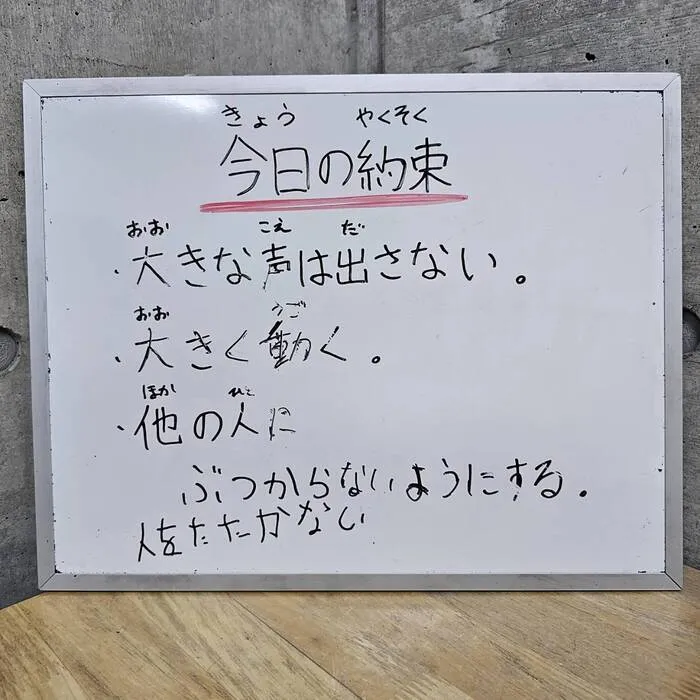 きょう やくそく
今日の約束
おお こえ だ
・大きな声は出さない。
おお うご
・大きく動く。
ほか ひと
・他の人に
ぶつからないようにする。
人をたたかない